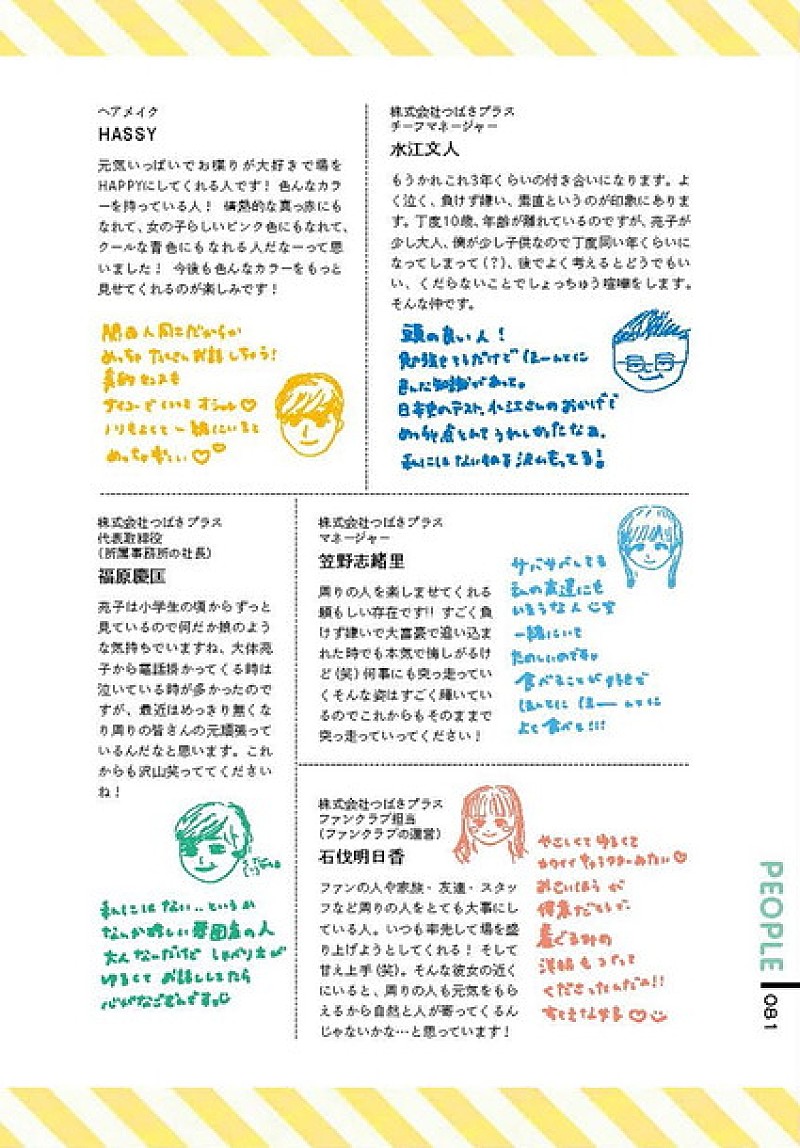 ヘアメイク
HASSY
元気いっぱいでお喋りが大好きで場を
HAPPYにしてくれる人です！ 色んなカラ
ーを持っている人！ 情熱的な真っ赤にも
なれて、女の子らしいピンク色にもなれて、
クールな青色にもなれる人だなーって思
いました！ 今後も色んなカラーをもっと
見せてくれるのが楽しみです！
関西人同士だからか
めっちゃたくさんお話しちゃう！
ノリもよくて一緒にいると
めっちゃ楽しい♡♡
株式会社つばさプラス
チーフマネージャー
水江文人
もうかれこれ3年くらいの付き合いになります。よ
く泣く、負けず嫌い、素直というのが印象にありま
す。丁度10歳、年齢が離れているのですが、亮子が
少し大人、僕が少し子供なので丁度同い年くらいに
なってしまって（？）、後でよく考えるとどうでもい
い、くだらないことでしょっちゅう喧嘩をします。
そんな仲です。
頭の良い人！
勉強させてるだけでほーんとに
日本史のテスト、水江さんのおかげで
めっちゃ点とれてうれしかったなぁ。
私にはないものを沢山もってる！
株式会社つばさプラス
代表取締役
（所属事務所の社長）
福原慶匡
亮子は小学生の頃からずっと
見ているので何だか娘のよう
な気持ちでいますね、大体亮
子から電話掛かってくる時は
泣いている時が多かったので
すが、最近はめっきり無くな
り周りの皆さんの元頑張って
いるんだなと思います。これ
からも沢山笑っててください
ね！
私にはない..というか
なんか珍しい雰囲気の人
大人なーだけど しゃべり方が
ゆるくて お話ししてたら
心がなごむんですっ
株式会社つばさプラス
マネージャー
笠野志緒里
周りの人を楽しませてくれる
頼もしい存在です!! すごく負
けず嫌いで大富豪で追い込ま
れた時でも本気で悔しがるけ
ど（笑）何事にも突っ走ってい
くそんな姿はすごく輝いてい
るのでこれからもそのままで
突っ走っていってください！
サバサバしてる
私の友達にも
いそうな人で
一緒にいて
たのしいのですっ
食べることが好きで
ほんとに ほーーんとに
よく食べる!!!
株式会社つばさプラス
ファンクラブ担当
（ファンクラブの運営）
石伐明日香
ファンの人や家族・友達・スタッ
フなど周りの人をとても大事にし
ている人。いつも率先して場を盛
り上げようとしてくれる！ そして
甘え上手（笑）。そんな彼女の近く
にいると、周りの人も元気をもら
えるから自然と人が寄ってくるん
じゃないかな…と思っています！
やさしくて ゆるくて
カワイイ キャラクターみたい♡
おさいほうが
得意だとして
着ぐるみの
洋服もつくって
くださったんだよ!!
すてきな女子♡
PEOPLE
081